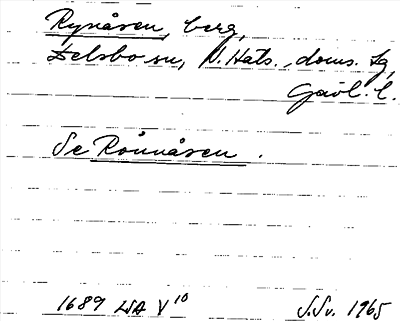 Rynåsen, berg,
Delsbo sn, N. Häls., doms. lg,
Gävl. l.
Se Rönnåsen.
1689 LSA V 10
S.Sv. 1965